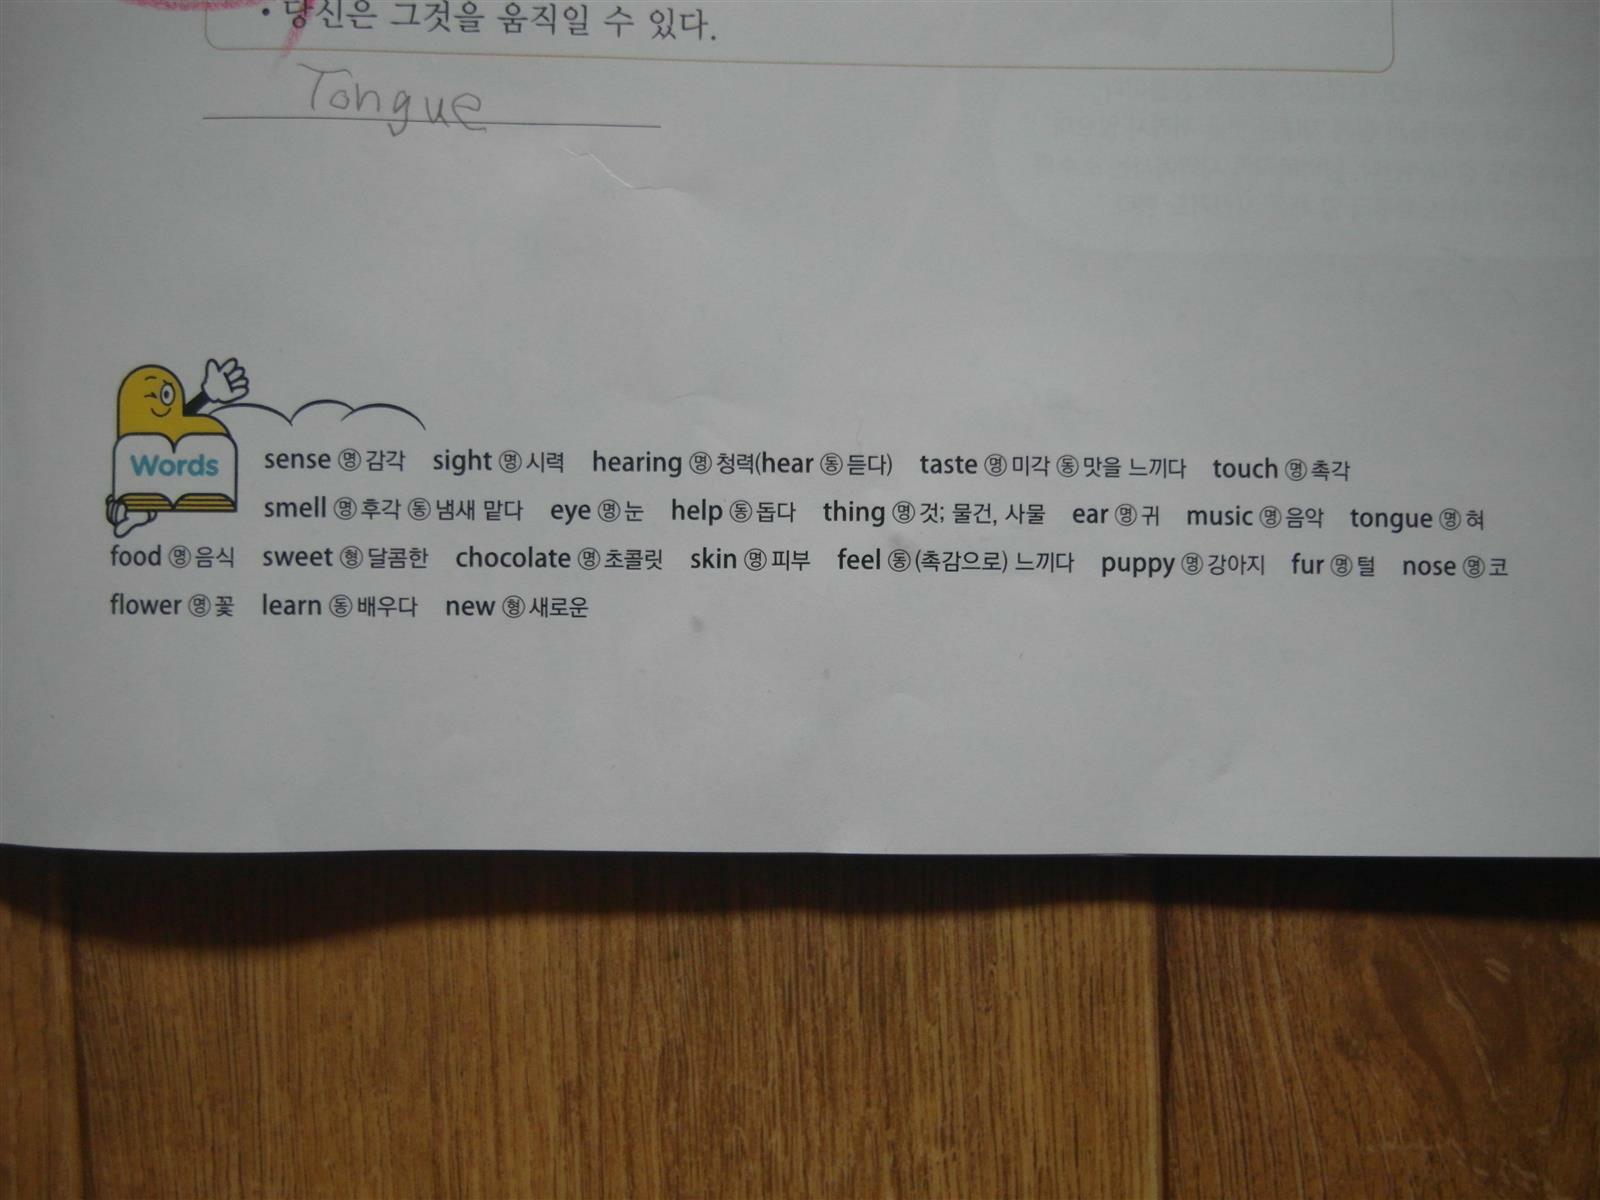 • 당신은 그것을 움직일 수 있다.
Tongue
Words
sense 명 감각 sight 명 시력 hearing 명 청력(hear 동 듣다) taste 명 미각 동 맛을 느끼다 touch 명 촉각
smell 명 후각 동 냄새 맡다 eye 명 눈 help 동 돕다 thing 명 것; 물건, 사물 ear 명 귀 music 명 음악 tongue 명 혀
food 명 음식 sweet 형 달콤한 chocolate 명 초콜릿 skin 명 피부 feel 동 (촉감으로) 느끼다 puppy 명 강아지 fur 명 털 nose 명 코
flower 명 꽃 learn 동 배우다 new 형 새로운